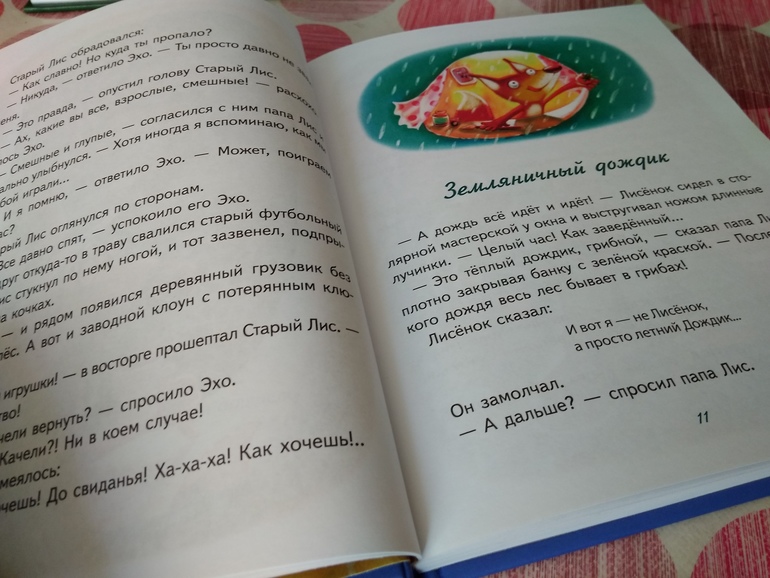 Старый Лис обрадовался:
— Как славно! Но куда ты пропало?
— Никуда, — ответило Эхо. — Ты просто давно не
меня.
— Это правда, — опустил голову Старый Лис.
— Ах, какие вы все, взрослые, смешные! —
лось Эхо.
— Смешные и глупые, — согласился с ним папа Лис и
ально улыбнулся. — Хотя иногда я вспоминаю, как мы
бой играли...
И я помню, — ответило Эхо. — Может, поиграем
ас?
рый Лис оглянулся по сторонам.
Все давно спят, — успокоило его Эхо.
друг откуда-то в траву свалился старый футбольный
ис стукнул по нему ногой, и тот зазвенел, подпры-
а кочках.
— и рядом появился деревянный грузовик без
лёс. А вот и заводной клоун с потерянным клю-
игрушки! — в восторге прошептал Старый Лис. —
тво!
чели вернуть? — спросило Эхо.
Качели?! Ни в коем случае!
меялось:
чешь! До свиданья! Ха-ха-ха! Как хочешь!..
Земляничный дождик
— А дождь всё идёт и идёт! — Лисёнок сидел в сто-
лярной мастерской у окна и выстругивал ножом длинные
лучинки. — Целый час! Как заведённый...
— Это тёплый дождик, грибной, — сказал папа Лис,
плотно закрывая банку с зелёной краской. — После
кого дождя весь лес бывает в грибах!
Лисёнок сказал:
И вот я — не Лисёнок,
а просто летний Дождик...
Он замолчал.
— А дальше? — спросил папа Лис.
11